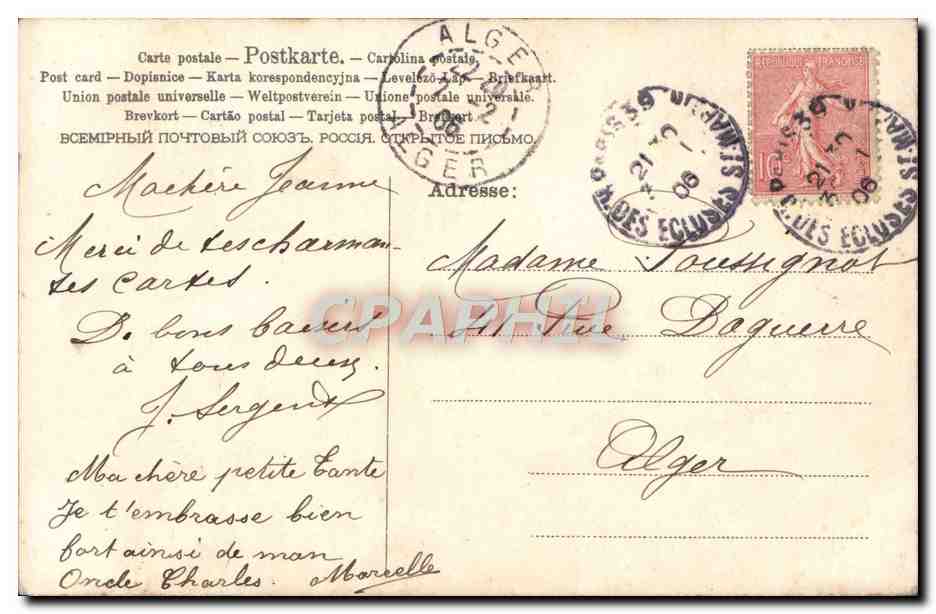 Carte postale — Postkarte. — Cartolina postale.
Post card — Dopisnice — Karta korespondencyjna — Levelező-Lap — Briefkaart.
Union postale universelle — Weltpostverein — Unione postale universale
Brevkort — Cartão postal — Tarjeta postal — Brefkort
ВСЕМІРНЫЙ ПОЧТОВЫЙ СОЮЗЪ. РОССІЯ. ОТКРЫТОЕ ПИСЬМО.
ALGER
06
ALGER
PARIS 39
21
06
R. DES ECLUSES ST MARTIN
REPUBLIQUE FRANÇAISE
10
PARIS 39
21
06
R. DES ECLUSES ST MA
Adresse:
Ma chère Jeanne
Merci de tes charman-
tes cartes.
De bons baisers
à tous deux.
J. Sergent
Ma chère petite tante
Je t'embrasse bien
fort ainsi de mon
Oncle Charles. Marcelle
Madame Poussignot
41 Rue Daguerre
Alger
CPAPHIL